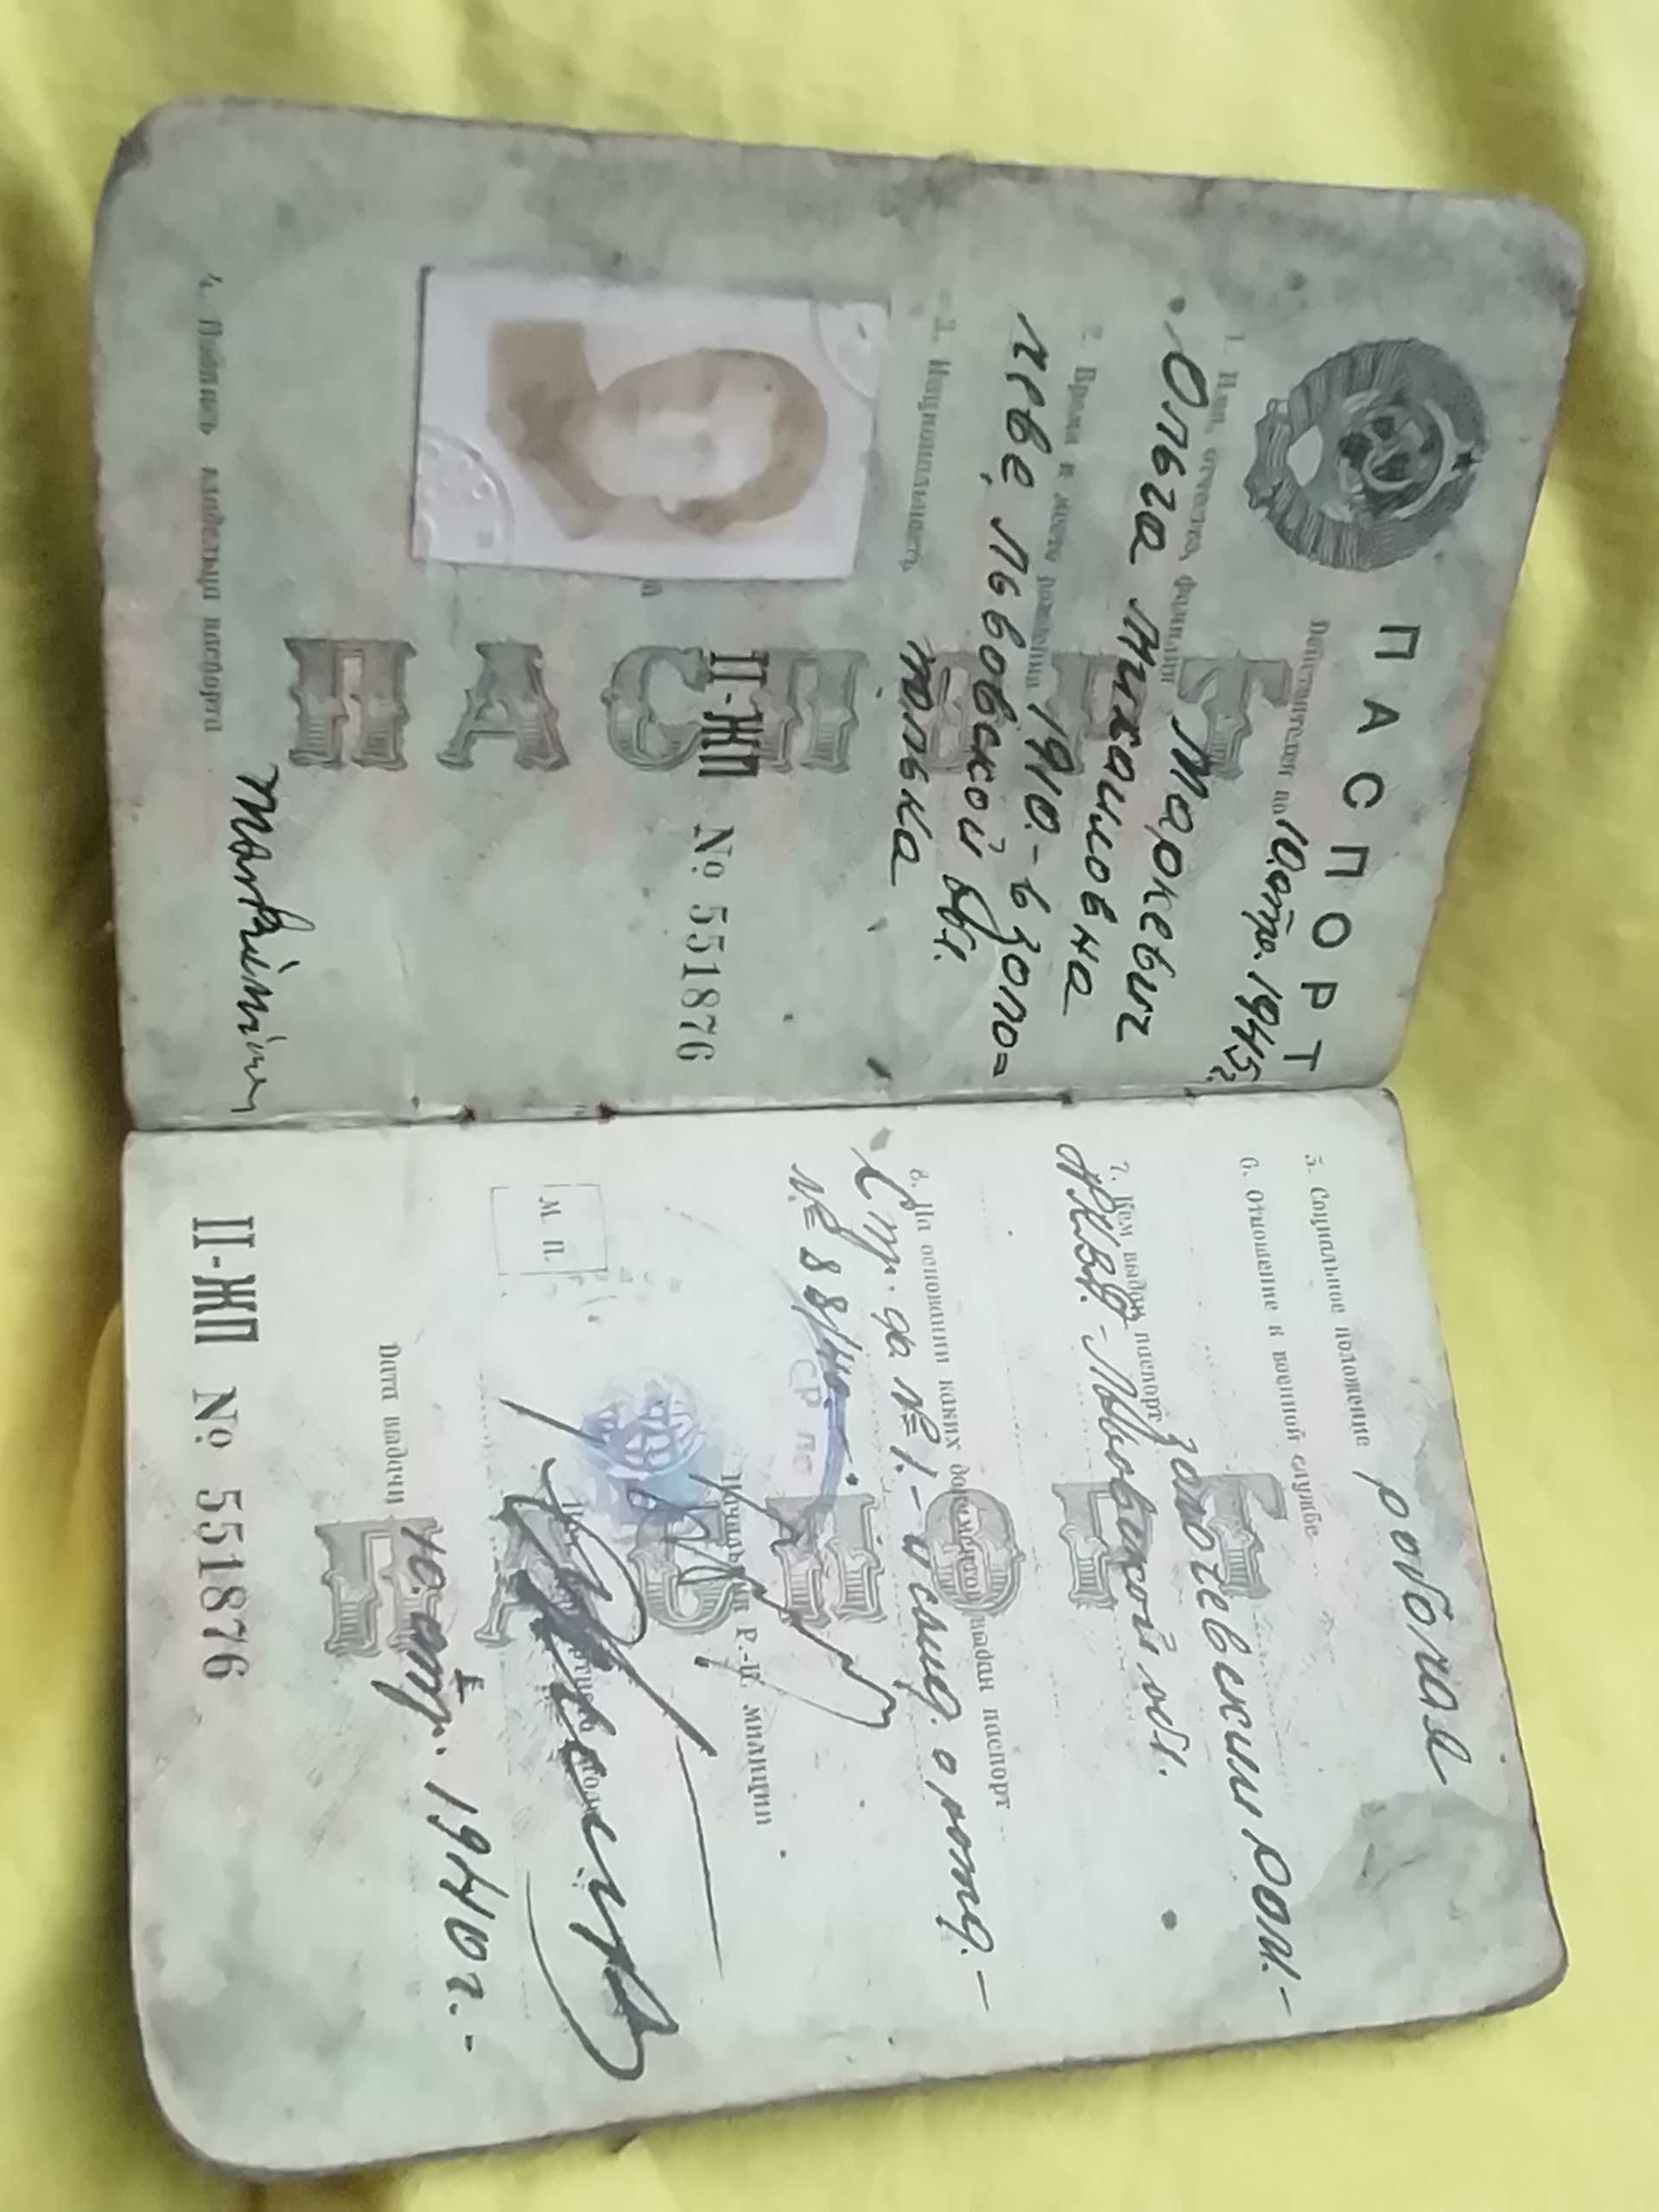 ПАСПОРТ
Действителен по 10 1945г.
1. Имя, отчество, фамилия
Маркевич
Ольга Михайловна
2. Время и место рождения 1910 - в Золо=
чеве, Львовской обл.
3. Национальность полька
II-ЖП № 551876
4. Подпись владельца паспорта
ПАСПОРТ
5. Социальное положение рабочая
6. Отношение к военной службе
7. Кем выдан паспорт Золочевским
НКВД - Львовской обл.
8. На основании каких документов выдан паспорт
№ 1 - и о рожд. -
№ 88/
М. П.
Начальник Р.-К. милиции
Дата выдачи 10 1940 г. -
ПАСПОРТ
II-ЖП № 551876